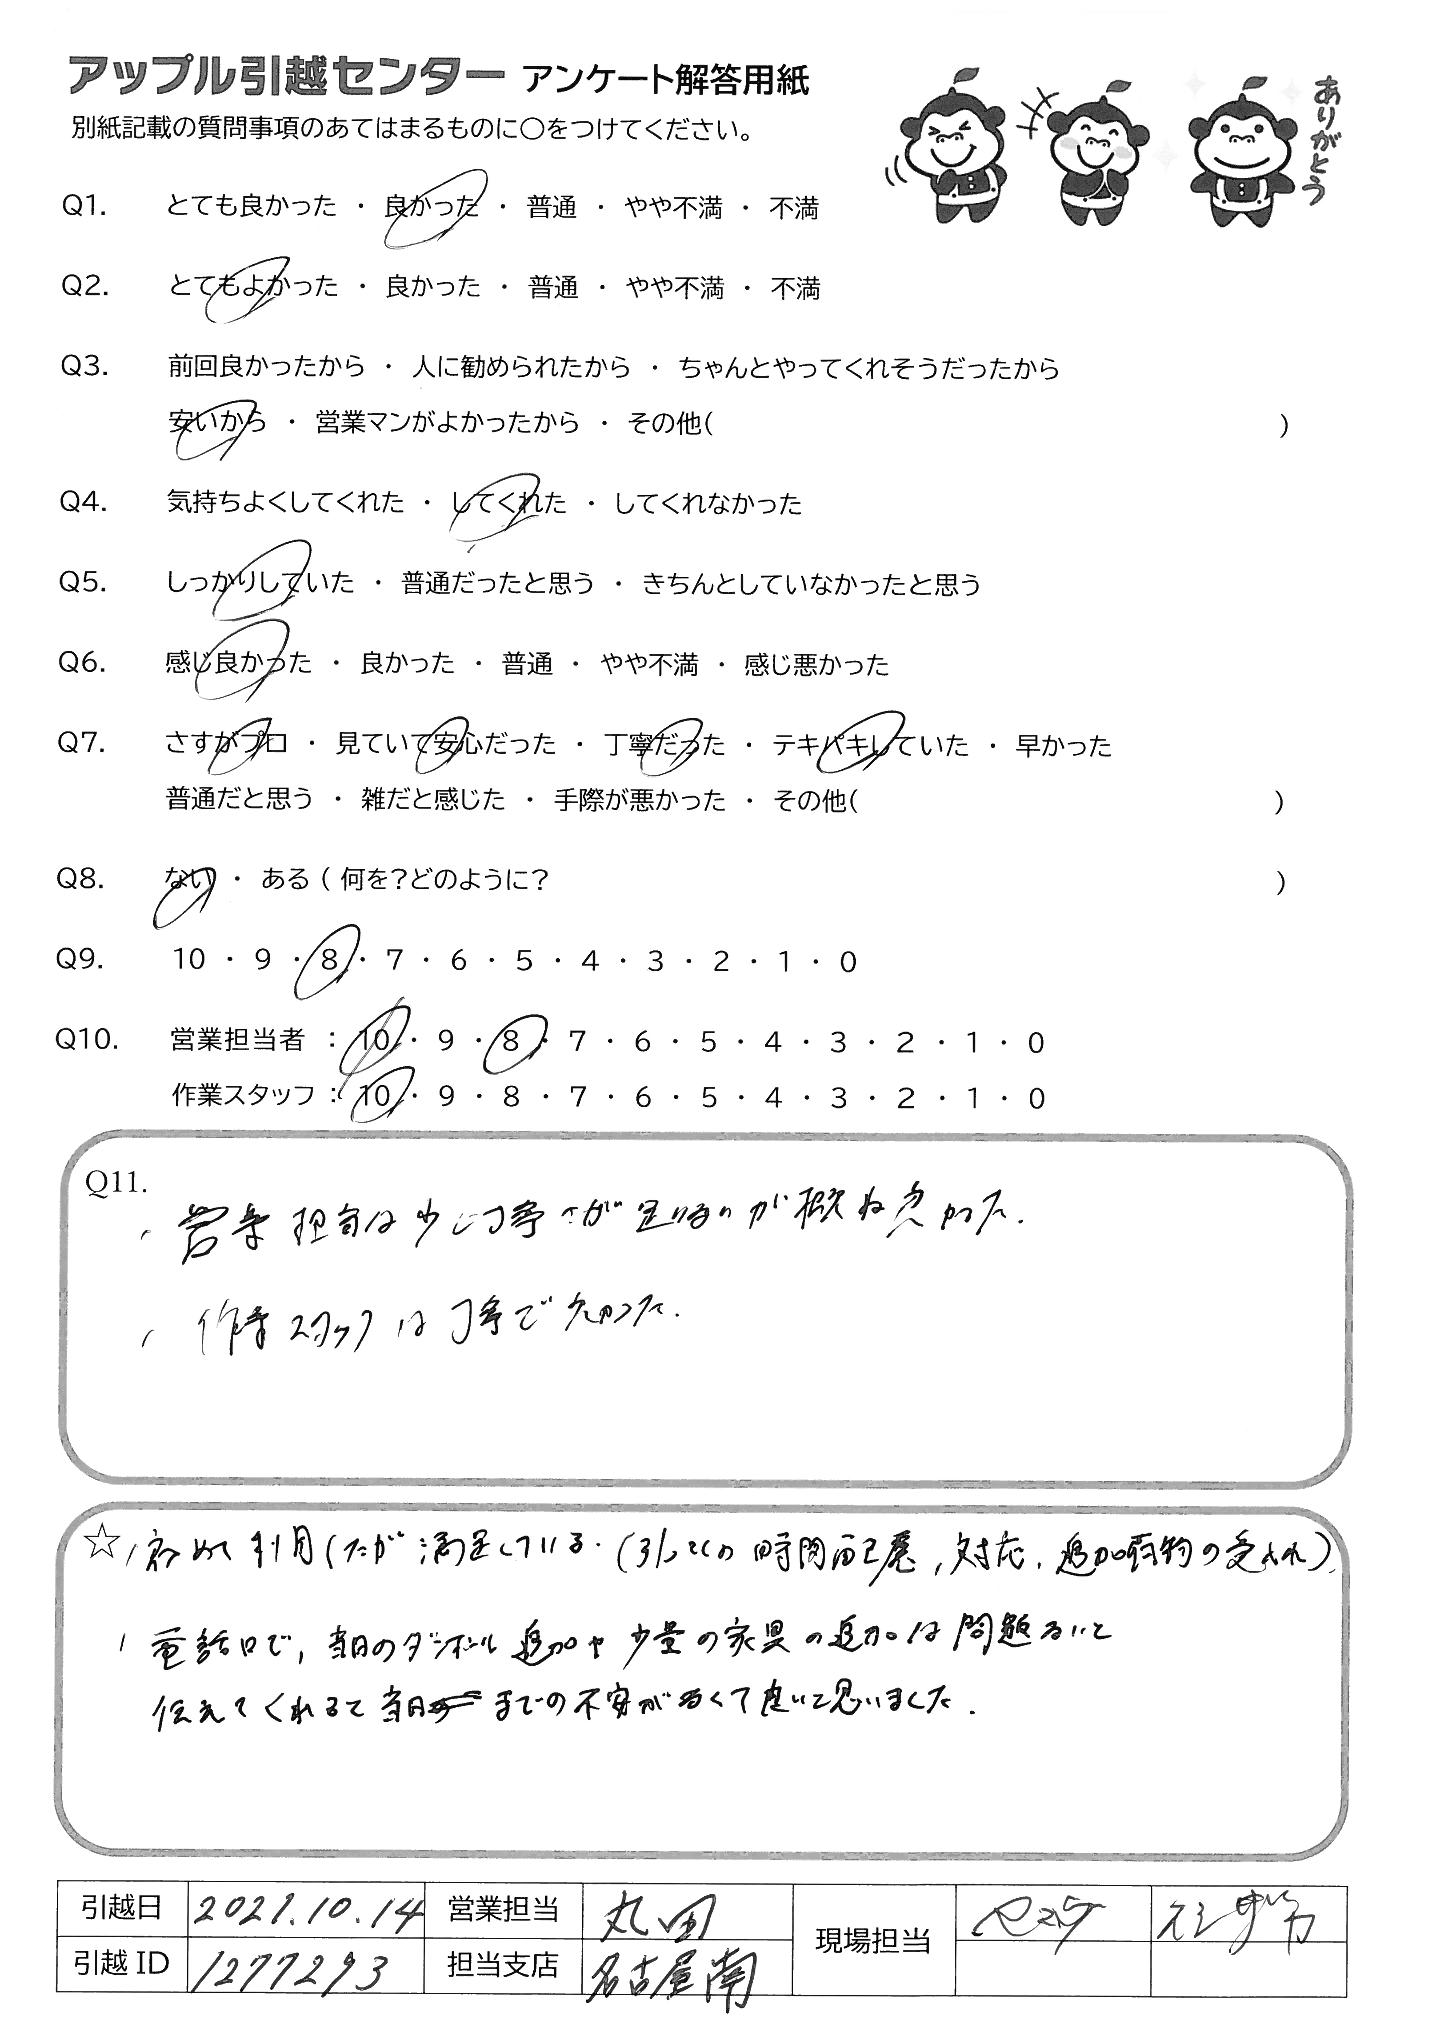 アップル引越センター アンケート解答用紙
別紙記載の質問事項のあてはまるものに○をつけてください。
ありがとう
Q1. とても良かった ・ 良かった ・ 普通 ・ やや不満 ・ 不満
Q2. とてもよかった ・ 良かった ・ 普通 ・ やや不満 ・ 不満
Q3. 前回良かったから ・ 人に勧められたから ・ ちゃんとやってくれそうだったから
安いから ・ 営業マンがよかったから ・ その他( )
Q4. 気持ちよくしてくれた ・ してくれた ・ してくれなかった
Q5. しっかりしていた ・ 普通だったと思う ・ きちんとしていなかったと思う
Q6. 感じ良かった ・ 良かった ・ 普通 ・ やや不満 ・ 感じ悪かった
Q7. さすがプロ ・ 見ていて安心だった ・ 丁寧だった ・ テキパキしていた ・ 早かった
普通だと思う ・ 雑だと感じた ・ 手際が悪かった ・ その他( )
Q8. ない ・ ある ( 何を?どのように? )
Q9. 10 ・ 9 ・ 8 ・ 7 ・ 6 ・ 5 ・ 4 ・ 3 ・ 2 ・ 1 ・ 0
Q10. 営業担当者 : 10 ・ 9 ・ 8 ・ 7 ・ 6 ・ 5 ・ 4 ・ 3 ・ 2 ・ 1 ・ 0
作業スタッフ : 10 ・ 9 ・ 8 ・ 7 ・ 6 ・ 5 ・ 4 ・ 3 ・ 2 ・ 1 ・ 0
Q11.
営業担当は少し丁寧さが足りないが概ね良かった.
作業スタッフは丁寧で良かった.
☆ 初めて利用したが満足している.(引っこしの時間配慮,対応,追加荷物の受入れ)
電話口で,当日のダンボール追加や少量の家具の追加は問題ないと
伝えてくれると当日までの不安がなくて良いと思いました.
引越日 2021.10.14 営業担当 丸田 現場担当
引越ID 1277293 担当支店 名古屋南